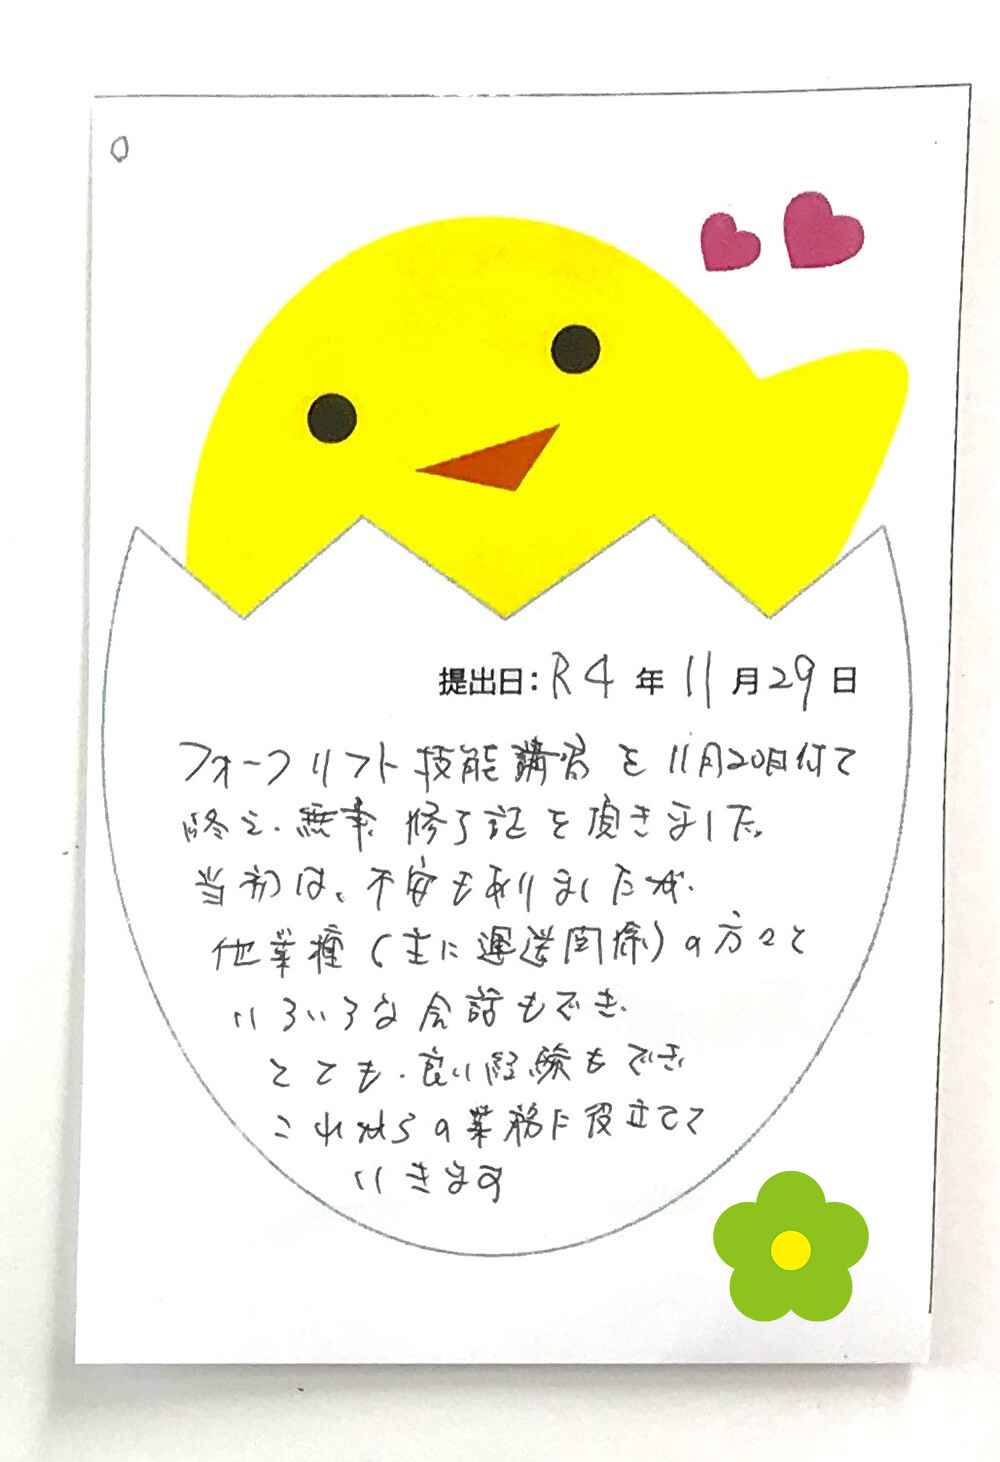 0
提出日:R4年11月29日
フォークリフト技能講習を11月20日付で
終え、無事、修了証を頂きました。
当初は、不安もありましたが、
他業種(主に運送関係)の方々と
いろいろな会話もでき、
とても、良い経験もでき
これからの業務に役立てて
いきます